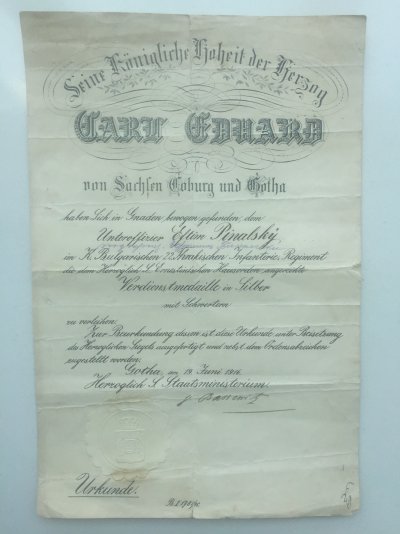 Seine Königliche Hoheit der Herzog
CARL EDUARD
von Sachsen Coburg und Gotha
haben Sich in Gnaden bewogen gefunden, dem
Unteroffizier Eften
im K. Bulgarischen Infanterie Regiment
die dem Herzoglich S. Ernestinischen Hausorden angereihte
Verdienstmedaille in Silber
mit Schwertern
zu verleihen.
Zur Beurkundung dessen ist diese Urkunde unter Beisetzung
des Herzoglichen Siegels ausgefertigt und nebst dem Ordenszeichen
zugestellt worden.
Gotha, am 19. Juni
Herzoglich S. Staatsministerium.
Urkunde.